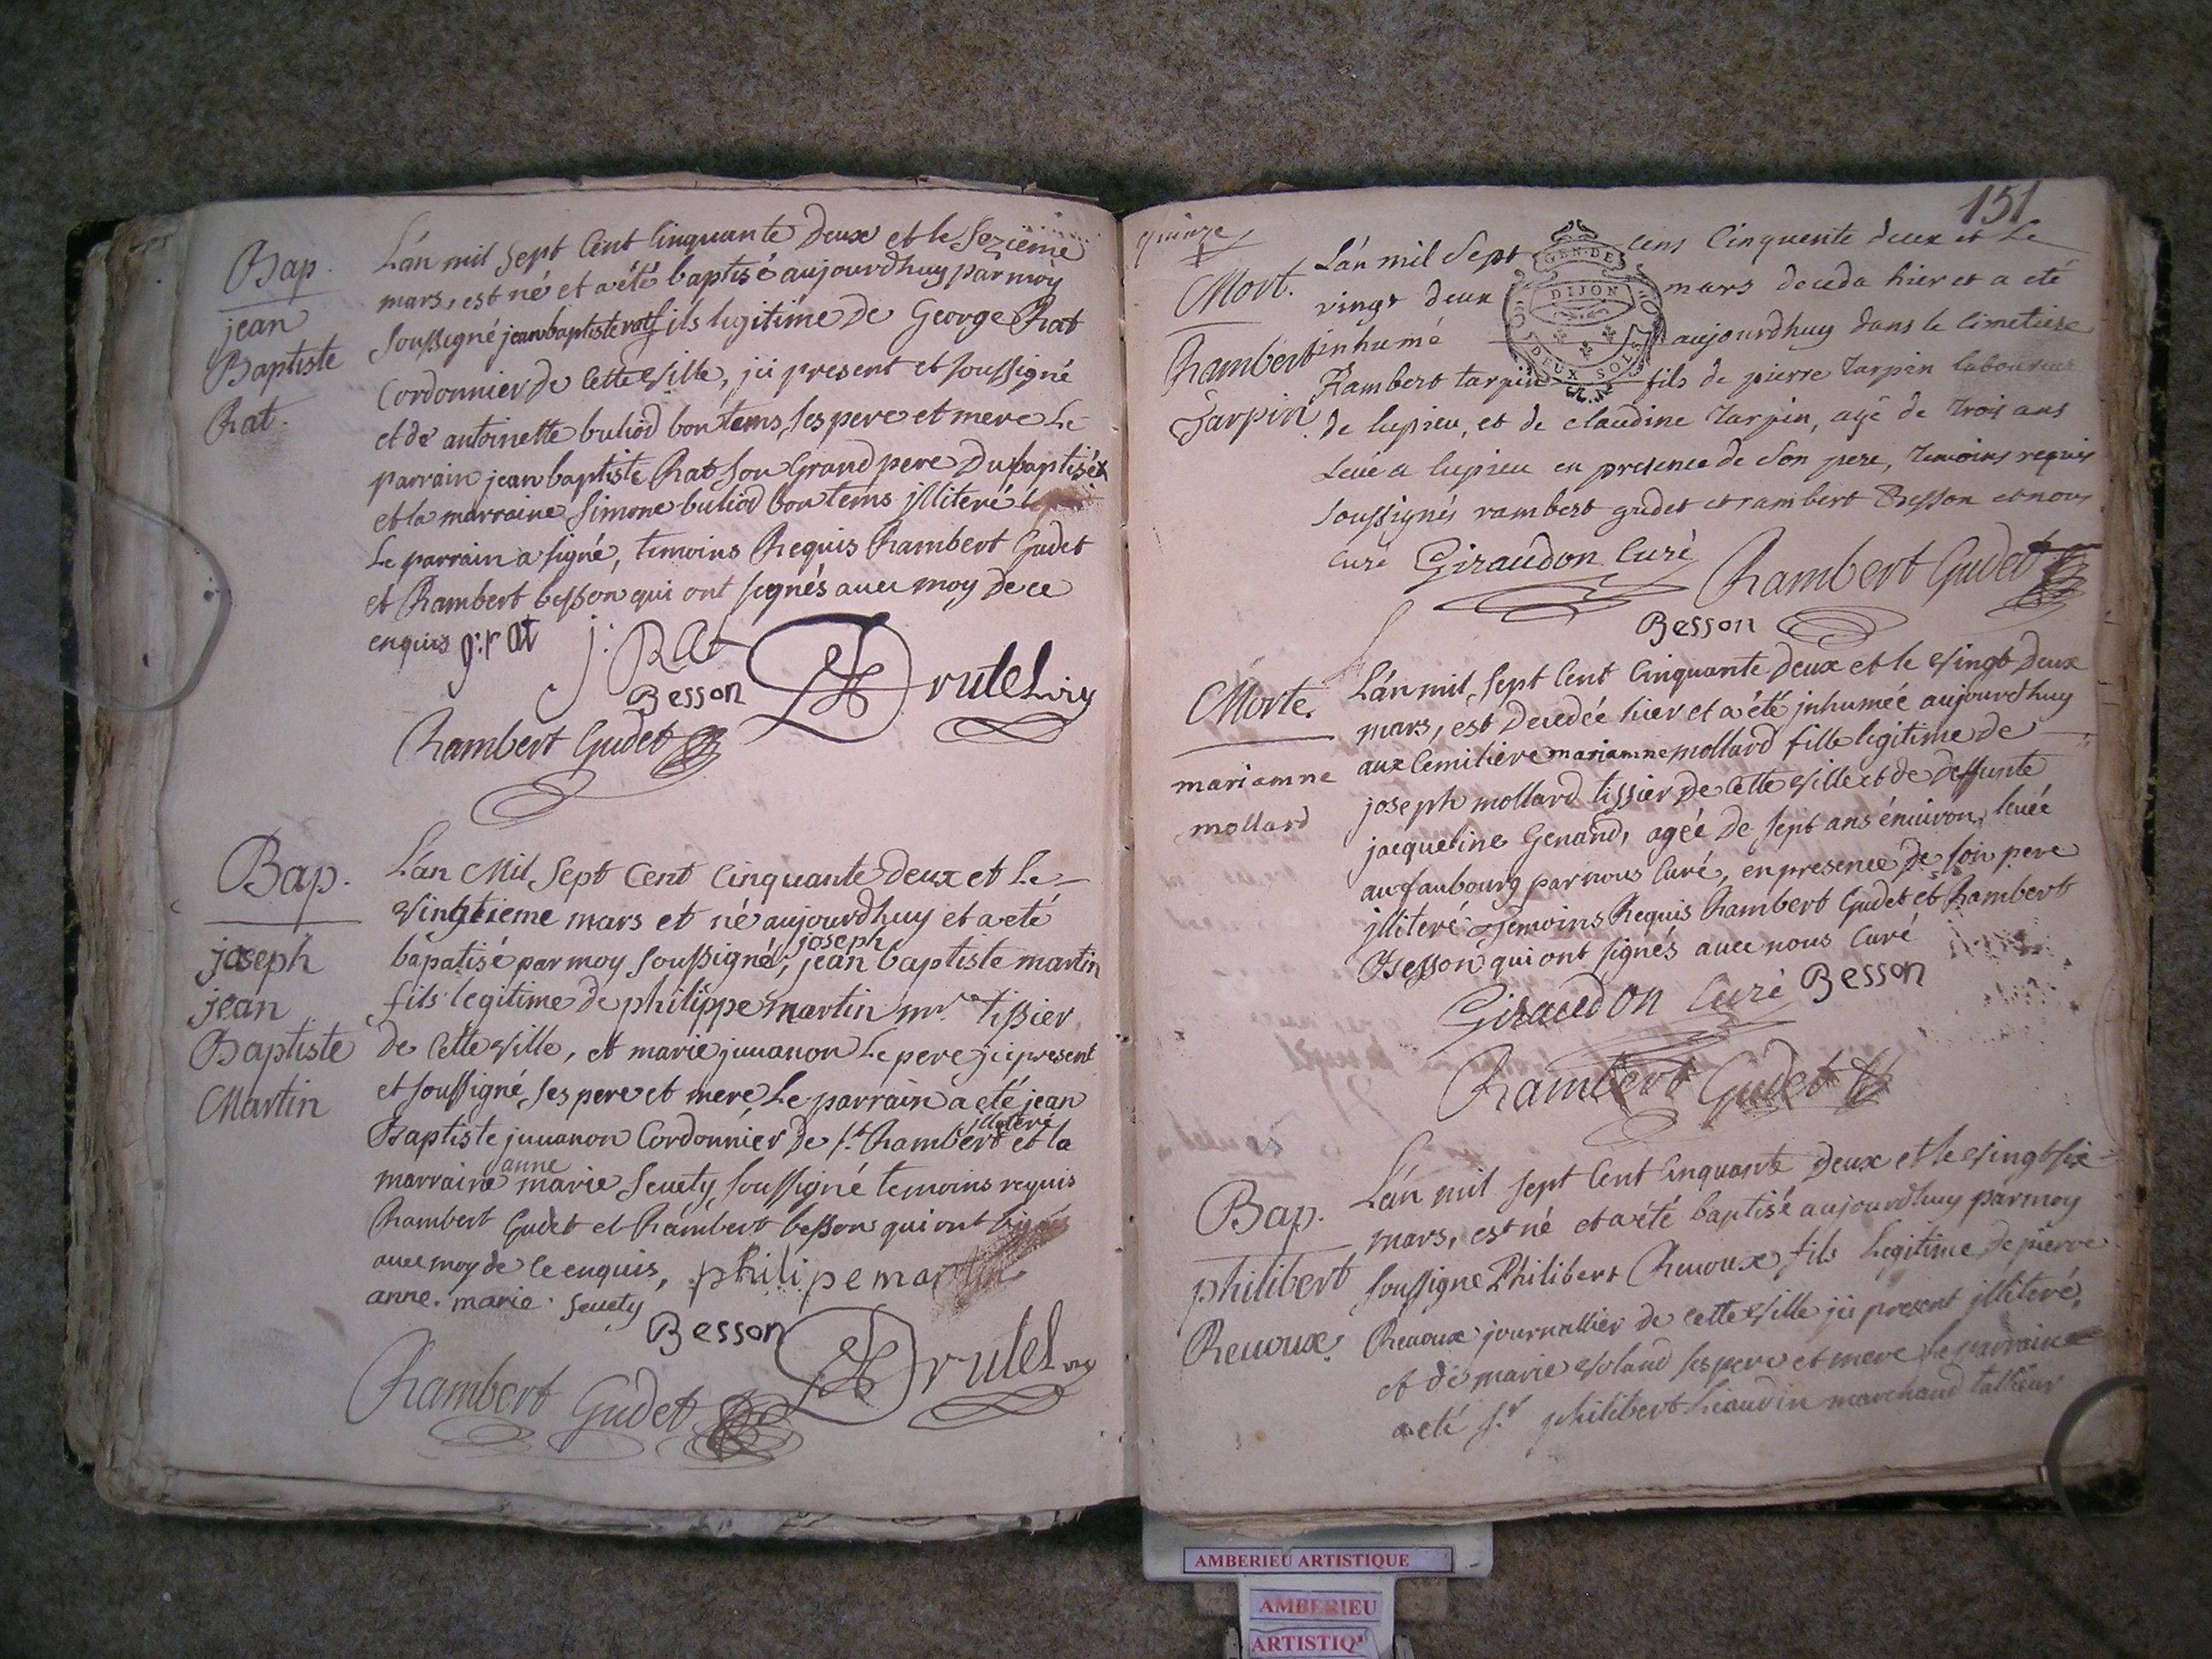 Bap.
jean
Baptiste
Rat.
L'an mil sept Cent Cinquante Deux et le sezieme
mars, est né et a été baptisé aujourdhuy par moy
soussigné jean baptiste rat fils legitime de George Rat
Cordonnier de cette ville, ici present et soussigné
et de antoinette buliod bontems, ses pere et mere Le
parrain jean baptiste Rat son Grand pere du baptisé
et la marraine simone buliod bontems jlliteré
Le parrain a signé, temoins Requis Rambert Gudet
et Rambert besson qui ont signés avec moy de ce
enquis g: r at j: Rat
Besson Drutel vic
Rambert Gudet
Bap.
joseph
jean
Baptiste
Martin
L'an Mil Sept Cent Cinquante Deux et Le
vingtieme mars et né aujourdhuy et a eté
joseph
bapatisé par moy soussigné, jean baptiste martin
fils legitime de philippe martin mr. tissier
de cette ville, et marie juuanon Le pere ici present
et soussigné, ses pere et mere, Le parrain a eté jean
jlliteré
Baptiste juuanon Cordonnier de st. Rambert et la
anne
marraine marie seuety, soussigné temoins requis
Rambert Gudet et Rambert besson qui ont signés
avec moy de ce enquis, philipe martin
anne. marie. seuety
Besson Drutel vic
Rambert Gudet
quinze
151
Mort.
Rambert
Tarpin
GEN. DE
DIJON
DEUX SOLS
L'an mil sept cens Cinquente deux et Le
vingt deux mars deceda hier et a eté
inhumé aujourdhuy dans le Cimetiere
Rambert tarpin fils de pierre Tarpin laboureur
de lupieu, et de claudine Tarpin, agé de trois ans
Leué a lupieu en presence de son pere, temoins requis
soussignés rambert gudet et rambert Besson et nous
curé Giraudon Curé Rambert Gudet
Besson
Morte.
mariamne
mollard
L'an mil sept Cent Cinquante Deux et le vingt Deux
mars, est Decedée hier et a été jnhumée aujourdhuy
aux Cemitiere mariamne mollard fille legitime de
joseph mollard tissier de cette ville et de Deffunte
jacqueline Genand, agéé de sept ans énuiron, leuée
au faubourg par nous Curé, en presence de son pere
jlliteré Temoins Requis Rambert Gudet et Rambert
Besson qui ont signés avec nous Curé
Giraudon Curé Besson
Rambert Gudet
Bap.
philibert
Reuoux.
L'an mil sept Cent Cinquante Deux et le vingt six
mars, est né et a été baptisé aujourdhuy par moy
soussigne Philibert Reuoux fils Legitime de pierre
Reuoux journallier de cette ville ici present jlliteré,
et de marie voland ses pere et mere Le parrain
a eté sr. philibert marchand tallieur
AMBERIEU ARTISTIQUE
AMBERIEU
ARTISTIQ